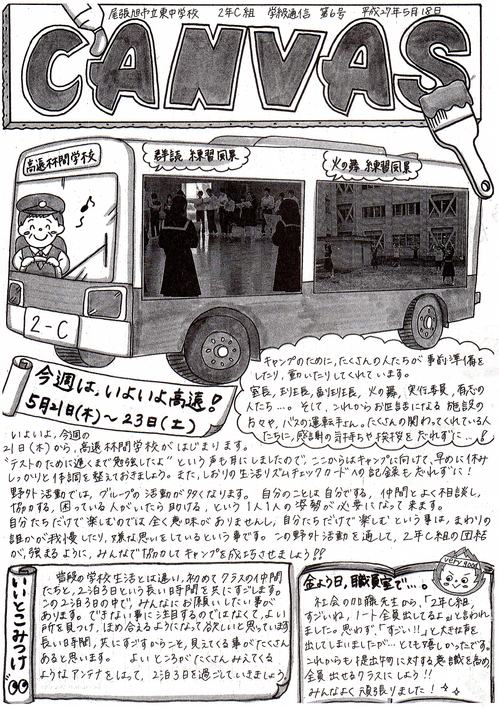 尾張旭市立東中学校 2年C組 学級通信 第6号 平成27年5月18日
CANVAS
高遠林間学校
群読 練習風景
火の舞 練習風景
2-C
今週は、いよいよ高遠!
5月21日(木)～23日(土)
キャンプのために、たくさんの人たちが事前準備を
したり、動いたりしてくれています。
室長、班長、副班長、火の舞、実行委員、有志の
人たち…。そして、これからお世話になる施設の
方々や、バスの運転手さん。たくさんの関わってくれている人
たちに、感謝の気持ちや挨拶をたれずに…!
いよいよ、今週の
21日(木)から、高遠林間学校がはじまります。
"テストのために遅くまで勉強したよ"という声も耳にしましたので、ここからはキャンプに向けて、早めに休み
しっかりと体調を整えておきましょう。また、しおりの生活リズムチェックカードへの記録も忘れずに!
野外活動では、グループの活動が多くなります。自分のことは自分でする、仲間とよく相談し、
協力する、困っている人がいたら助ける、という1人1人の姿勢が必要になって来ます。
自分たちだけで楽しむのでは全く意味がありませんし、自分たちだけで楽しむという事は、まわりの
誰かが我慢したり、嫌な思いをしているという事です。この野外活動を通して、2年C組の団結
が、強まるように、みんなで協力してキャンプを成功させましょう!!
いいとこみつけ
普段の学校生活とは違い、初めてクラスの仲間
たちと、2泊3日という長い時間を共にすごします。
この2泊3日の中で、みんなにお願いしたい事が
あります。できない事に注目するのではなくて、よい
所を見つけ、ほめ合えるようになって欲しいと思っています。
長い時間、共にすごすからこそ、見えてくる事がたくさん
あると思います。よいところがたくさんみえてくる
ようなアンテナをはって、2泊3日を過ごしていきましょう。
very good
金よう日、職員室で…。
社会の加藤先生から、「2年C組、
すごいね、ノート全員出してるよ。」と言われ
ました。思わず、「すごい!!」と大きな声を
出してしまいましたが…とても嬉しかったです。
これからも提出物に対する意識を高め
全員出せるクラスにしよう!!
みんなよく頑張りました!